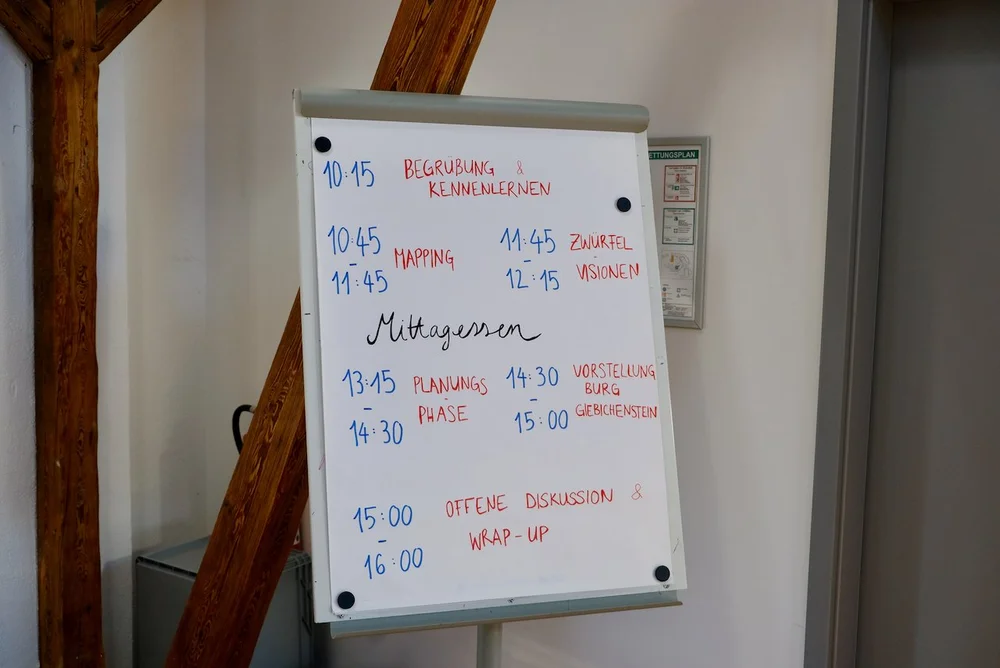 10:15 BEGRÜBUNG &
KENNENLERNEN
10:45
-
11:45
MAPPING
11:45
-
12:15
ZWÜRFEL
-
VISIONEN
Mittagessen
13:15
-
14:30
PLANUNGS
-
PHASE
14:30
-
15:00
VORSTELLUNG
BURG
GIEBICHENSTEIN
15:00
-
16:00
OFFENE DISKUSSION &
WRAP-UP
ETTUNGSPLAN